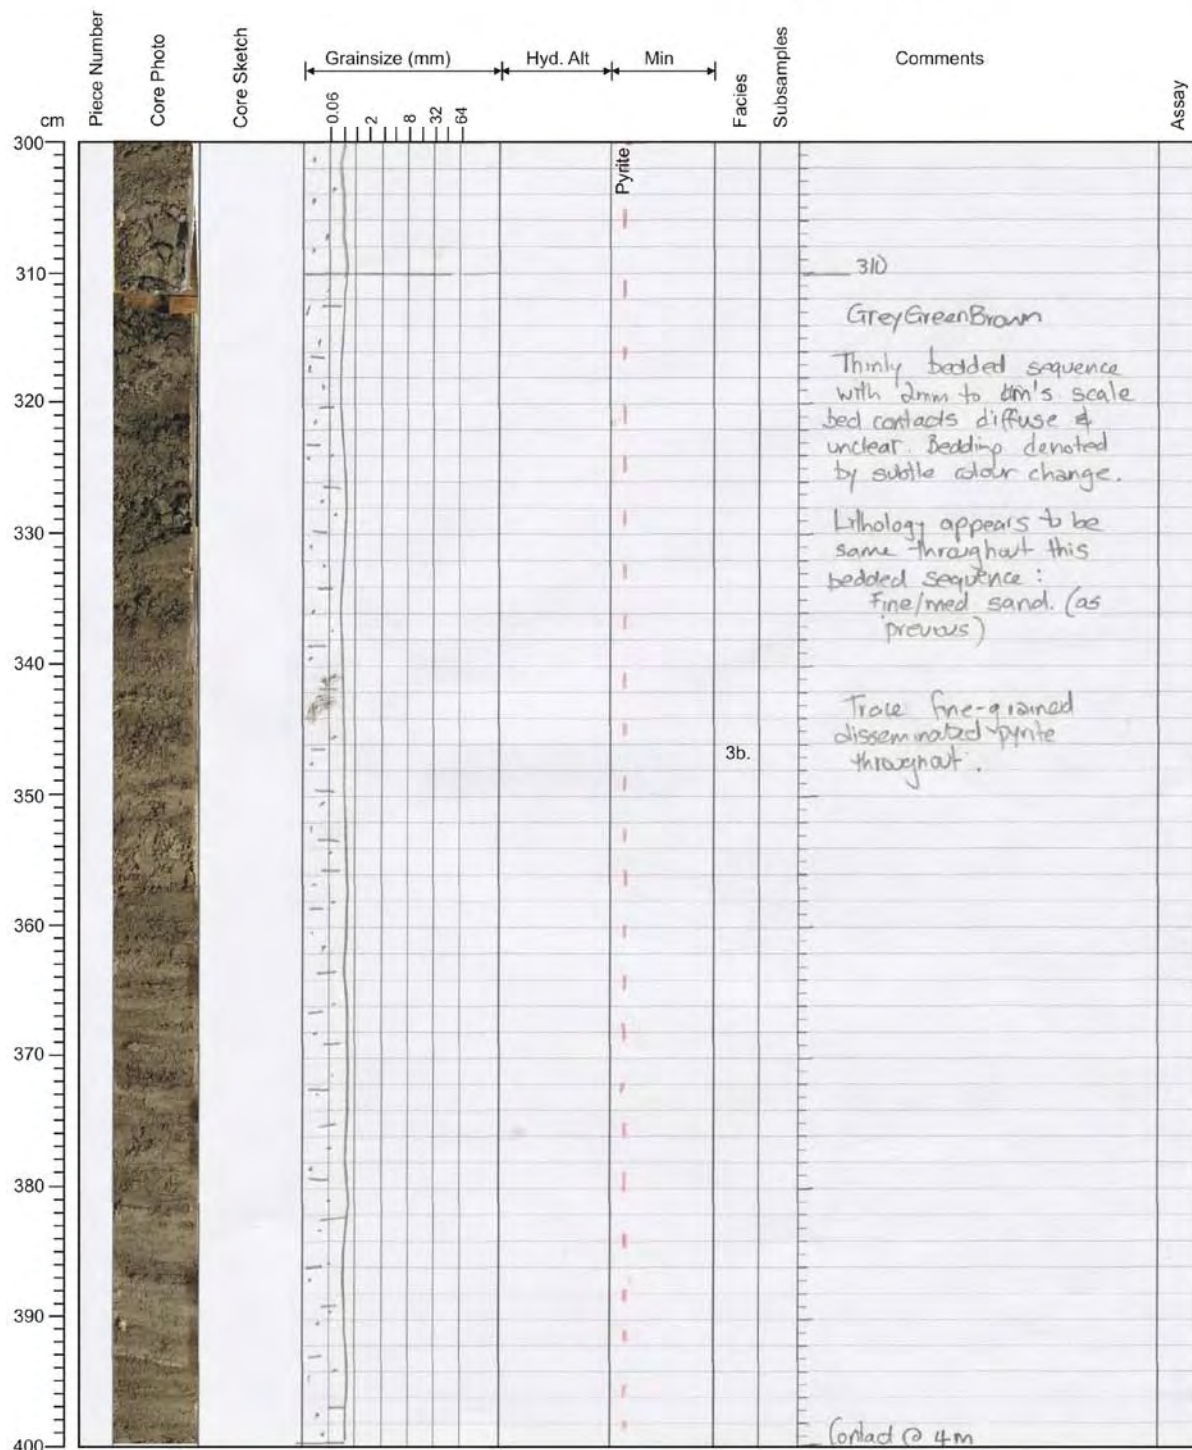 Piece Number
Core Photo
Core Sketch
Grainsize (mm)
Hyd. Alt
Min
Facies
Subsamples
Comments
Assay
cm
0.06
2
8
32
64
300
310
320
330
340
350
360
370
380
390
400
Pyrite
3b.
310
GreyGreenBrown
Thinly bedded sequence
with 2mm to scale
bed contacts diffuse &
unclear. Bedding denoted
by subtle colour change.
Lithology appears to be
same throughout this
bedded sequence :
Fine/med sand. (as
previous)
Trace fine-grained
disseminated pyrite
throughout.
Contact @ 4m